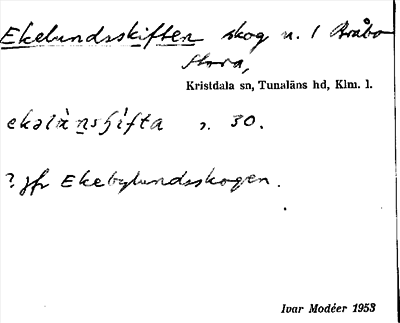 Ekelundsskiften skog n. 1 Bråbo
Stora,
Kristdala sn, Tunaläns hd, Klm. l.
30.
? jfr Ekebylundsskogen.
Ivar Modéer 1953